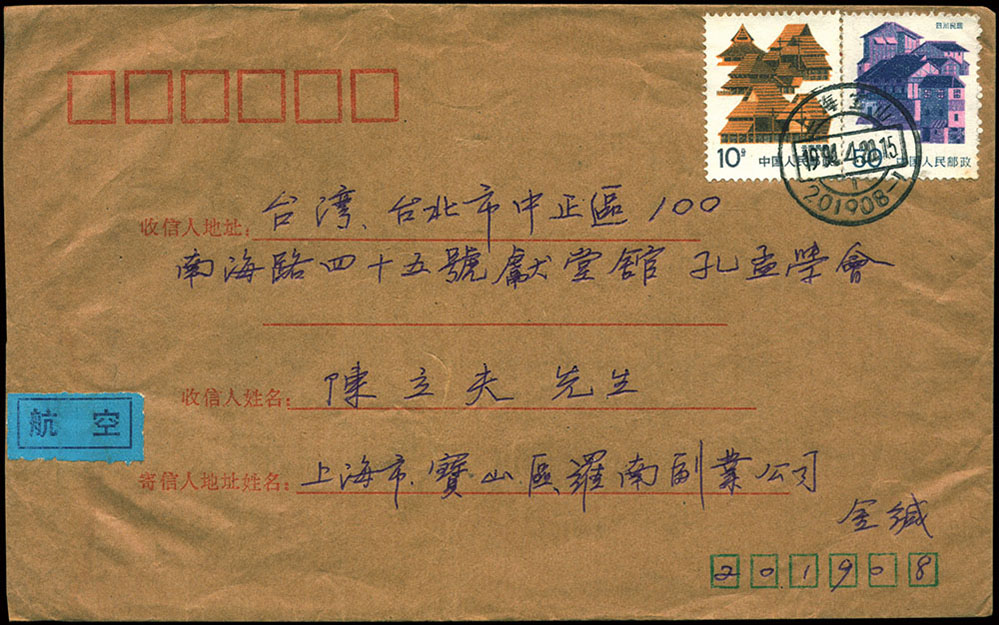 四川民居
10分
中国人民邮政
50
中国人民邮政
上海 山
201908-1
收信人地址: 台灣、台北市中正區100
南海路四十五號獻堂館 孔孟學會
收信人姓名: 陳立夫先生
航空
寄信人地址姓名: 上海市寶山區羅南副業公司
金缄
201908